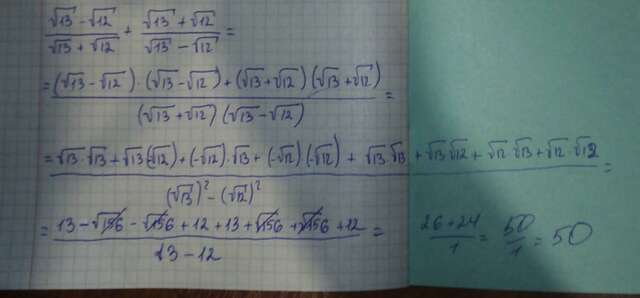 (√13 - √12)/(√13 + √12) + (√13 + √12)/(√13 - √12) =
= ((√13 - √12) · (√13 - √12) + (√13 + √12) (√13 + √12))/((√13 + √12) (√13 - √12)) =
= (√13 · √13 + √13 (-√12) + (-√12) · √13 + (-√12) · (-√12) + √13 · √13 + √13 √12 + √12 · √13 + √12 · √12)/((√13)² - (√12)²) =
= (13 - √156 - √156 + 12 + 13 + √156 + √156 + 12)/(13 - 12) = (26 + 24)/1 = 50/1 = 50